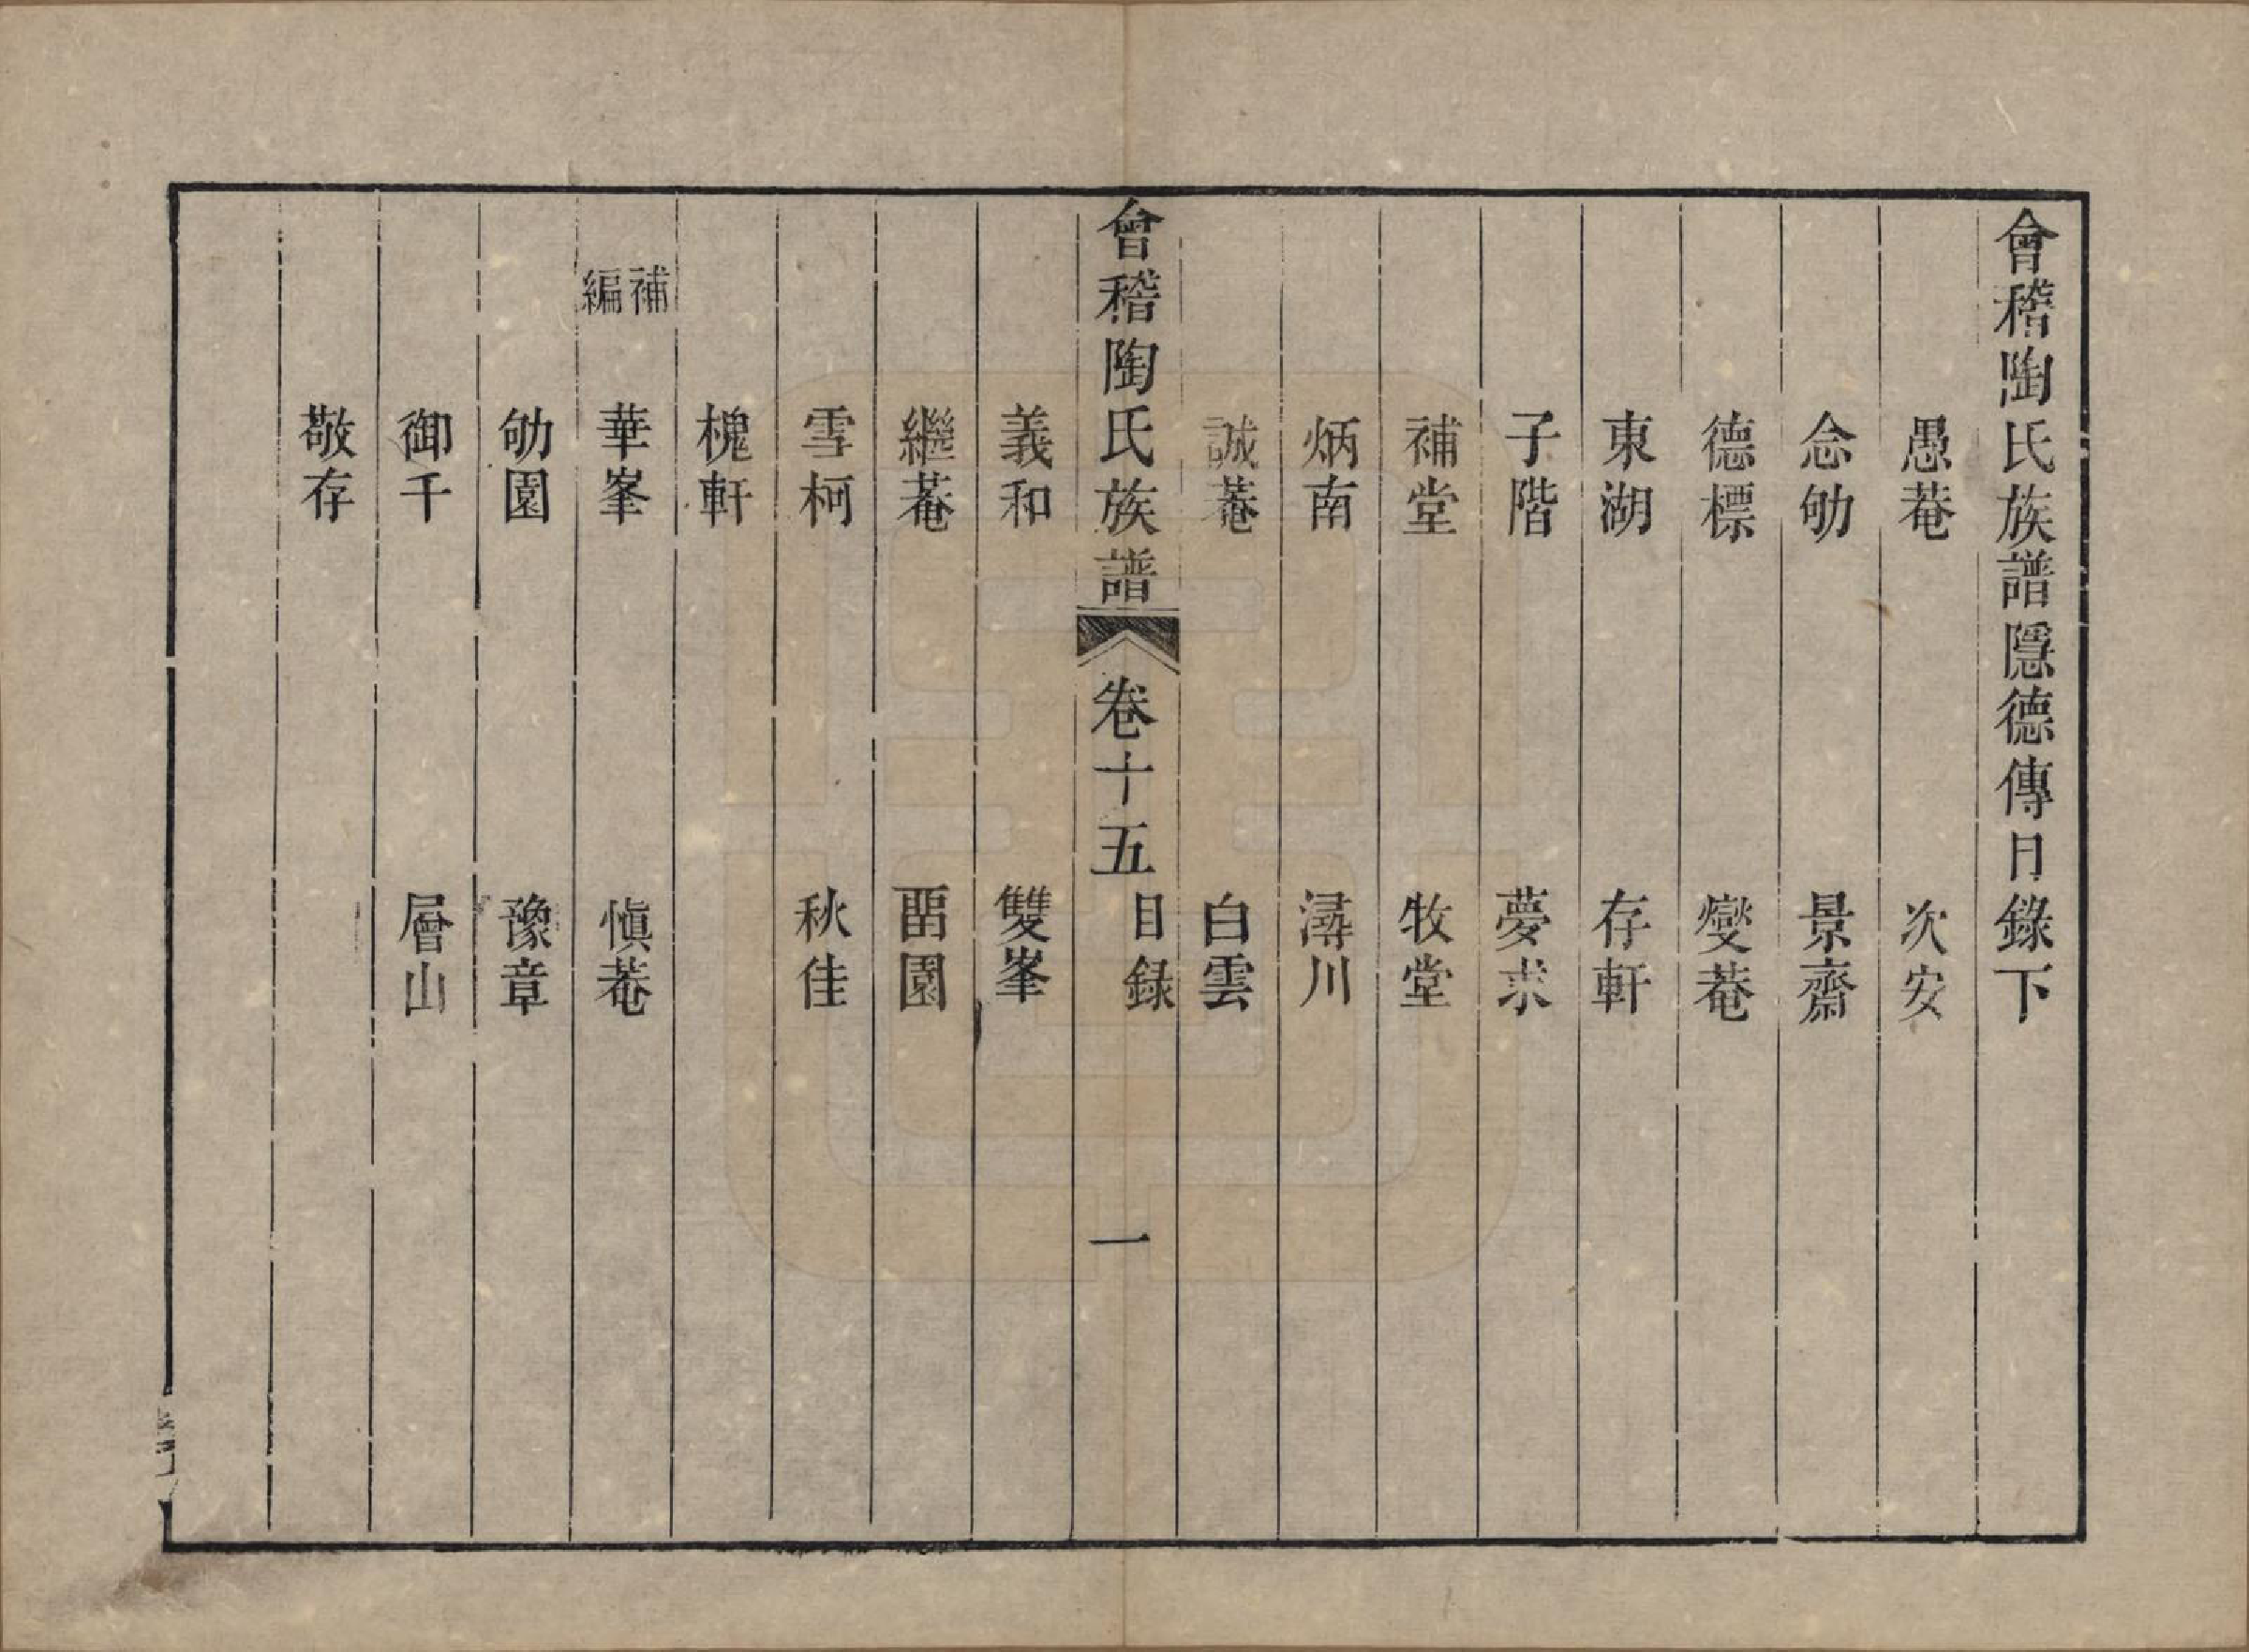 會稽陶氏族譜隱德傳目錄下
愚菴　次安
念劬　景齋
德標　燮菴
東湖　存軒
子階　夢求
補堂　牧堂
炳南　潯川
誠菴　白雲
會稽陶氏族譜　卷十五　目録　一
義和　雙峯
繼菴　㽞園
雪柯　秋佳
槐軒
補編　華峯　愼菴
劬園　豫章
御千　層山
敬存